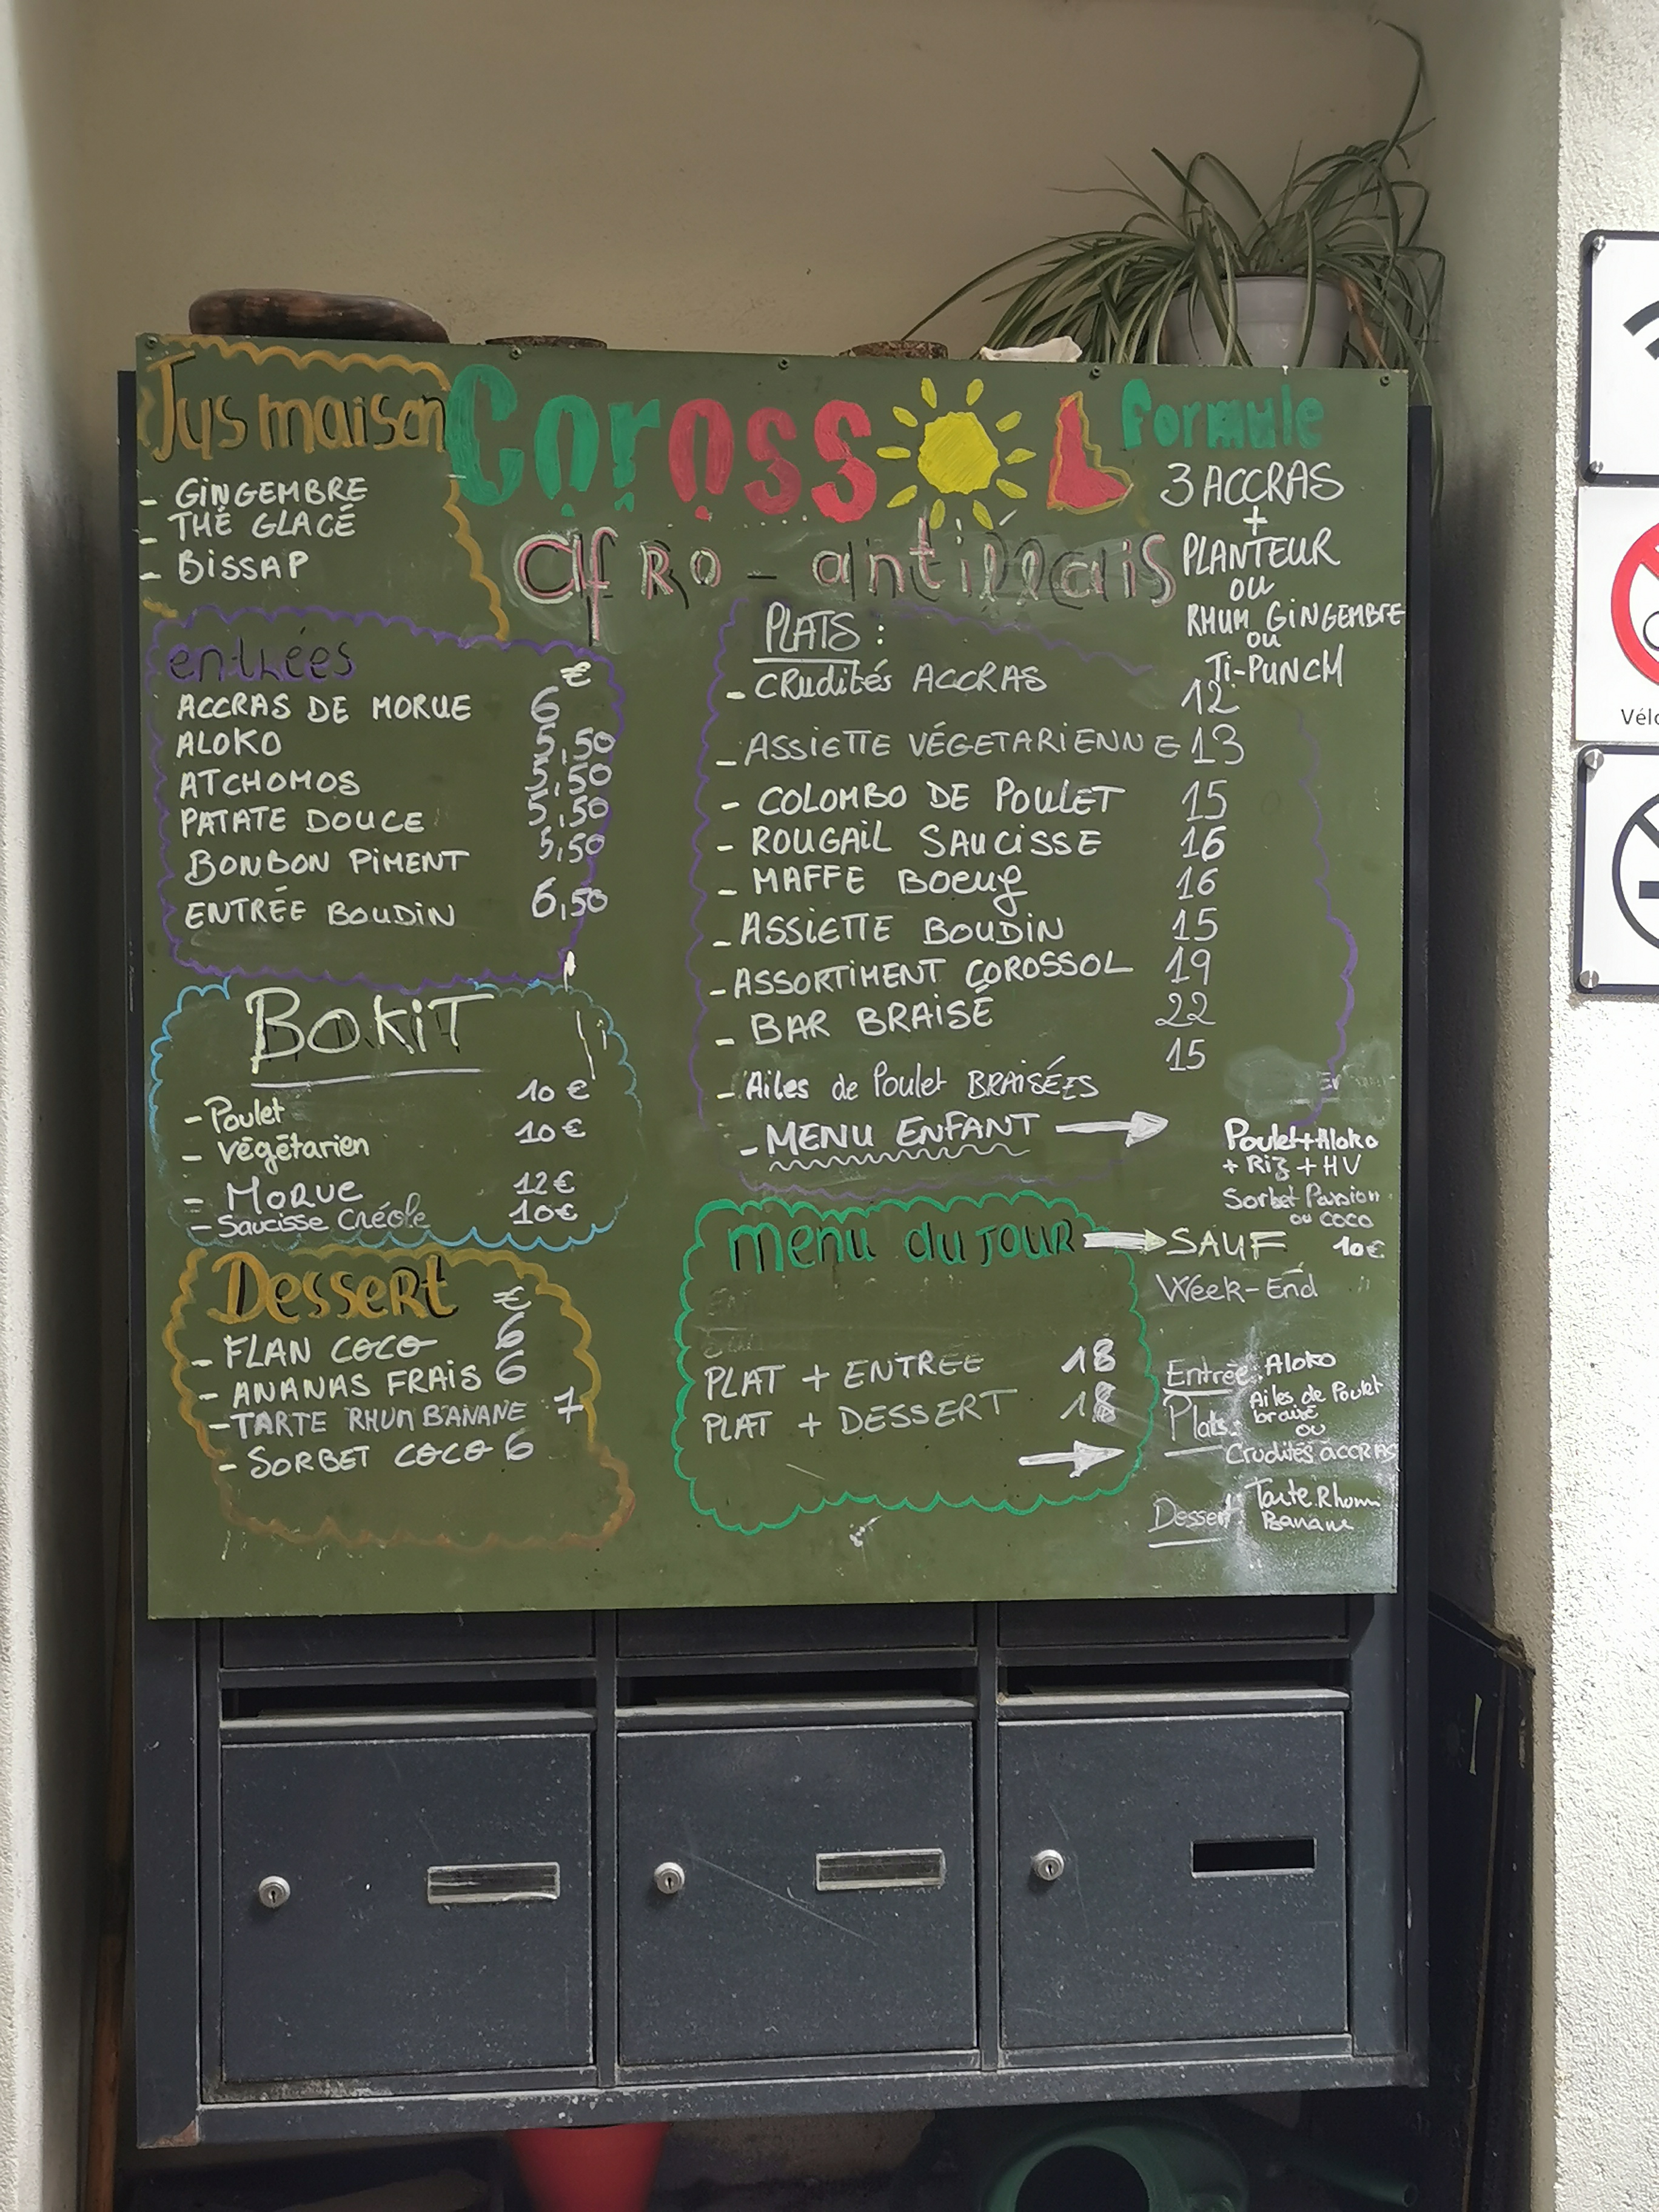 Jus maison
- GINGEMBRE
- THÉ GLACÉ
- BISSAP
COROSSOL
afRo - antillais
formule
3 ACCRAS
+
PLANTEUR
ou
RHUM GINGEMBRE
ou
Ti-PUNCH
entrées €
ACCRAS DE MORUE 6
ALOKO 5,50
ATCHOMOS 5,50
PATATE DOUCE 5,50
BONBON PIMENT 5,50
ENTRÉE BOUDIN 6,50
BOKIT
- Poulet 10 €
- Végétarien 10 €
- MORUE 12 €
- Saucisse Créole 10 €
Dessert €
- FLAN COCO 6
- ANANAS FRAIS 6
- TARTE RHUM BANANE 7
- SORBET COCO 6
PLATS :
- CRudités ACCRAS 12
- ASSIETTE VÉGETARIENNE 13
- COLOMBO DE POULET 15
- ROUGAIL SAUCISSE 16
- MAFFE BOEUf 16
- ASSIETTE BOUDIN 15
- ASSORTIMENT COROSSOL 19
- BAR BRAISÉ 22
- Ailes de Poulet BRAISÉES 15
- MENU ENFANT →
Poulet + Aloko
+ Riz + HV
Sorbet Passion
ou coco
10 €
menu du JOUR → SAUF
Week-End
PLAT + ENTREE 18
PLAT + DESSERT 18
→
Entrée: Aloko
Plats: Ailes de Poulet
braisé
ou
Crudités accras
Dessert Tarte Rhum
Banane
Vélo